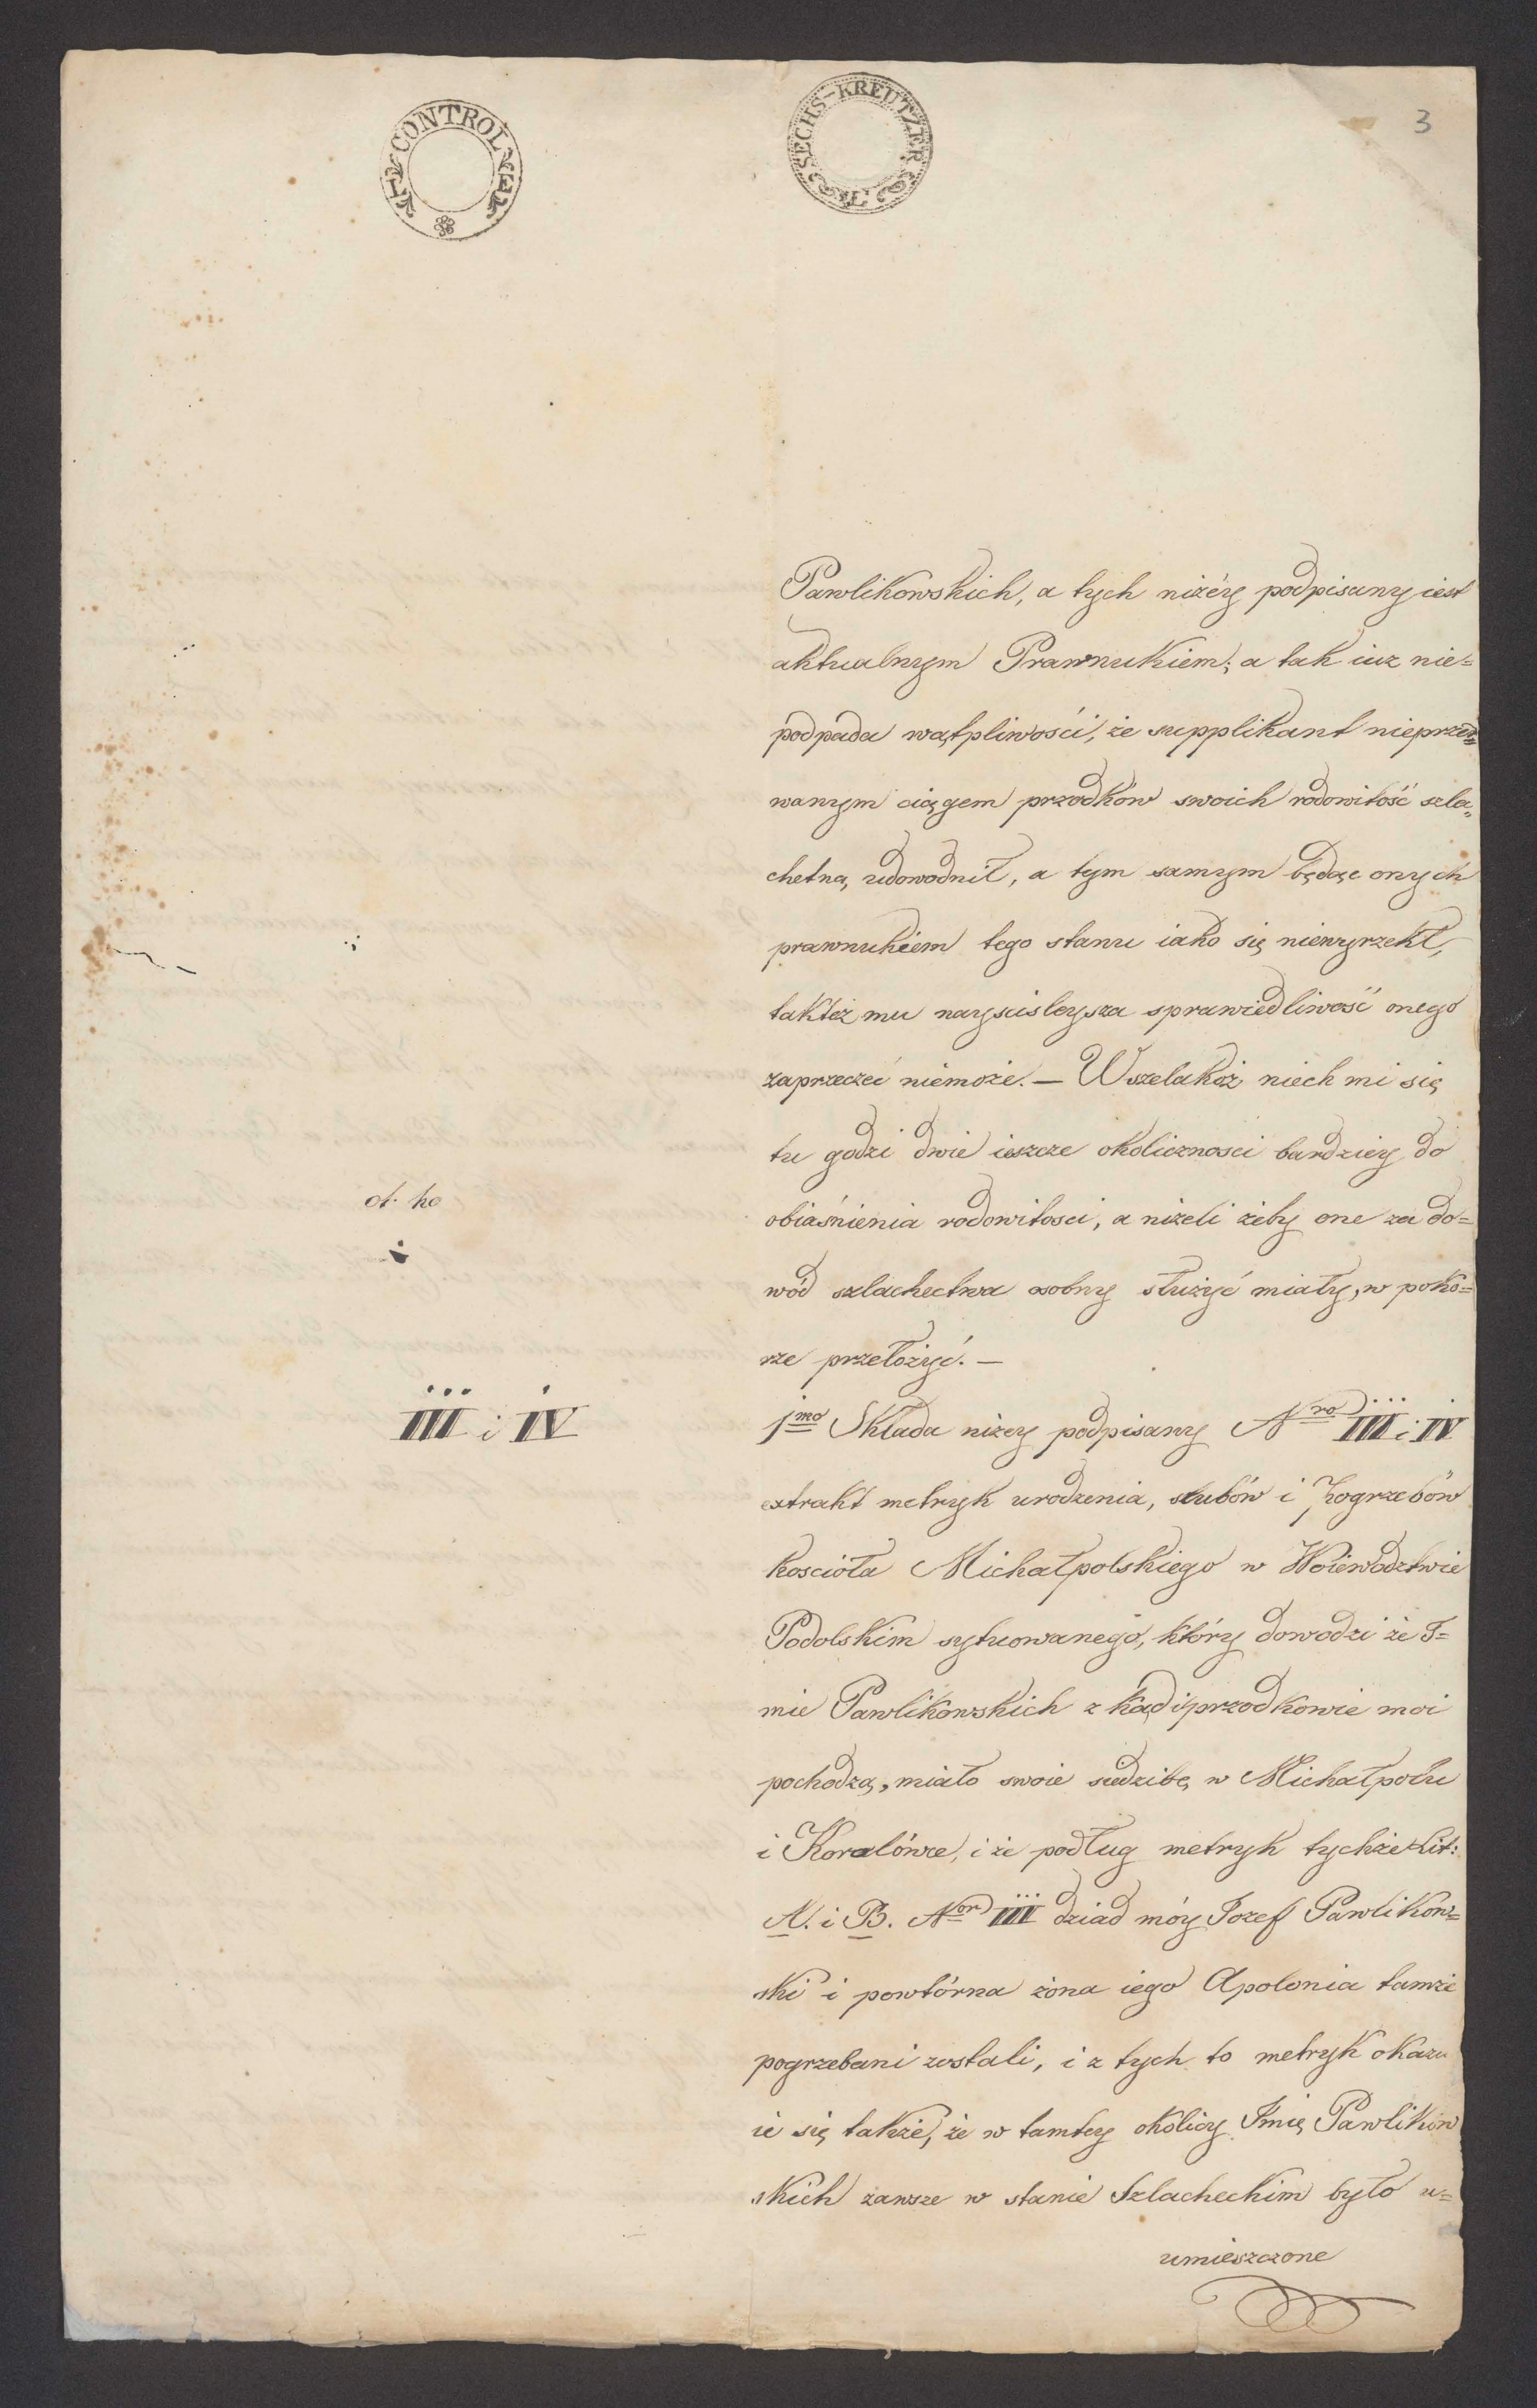 CONTROL
SECHS-KREUTZER
3
Pawlikowskich, a tych niżéy podpisany iest
aktualnym Prawnukiem; a tak iuz nie=
podpada wątpliwości, że supplikant nieprzer=
wanym ciągem przodków swoich rodowitość szla„
chetną udowodnił, a tym samym będąc onych
prawnukiem tego stanu iako się niewyrzekł,
taktéż mu nayscisleysza sprawiedliwość onego
zaprzeczeć niemoże. — Wszelakóż niech mi się
tu godzi dwie ieszcze okolicznosci bardziey do
obiaśnienia rodowitosci, a niżeli żeby one za do=
wód szlachectwa osobny służyć miały, w poko=
rze przełożyć. —
III i IV
1mo Składa niżey podpisany Nro III i IV
extrakt metryk urodzenia, slubów i Pogrzebów
koscioła Michałpolskiego w Woiewodztwie
Podolskim sytuowanego, który dowodzi że I=
mie Pawlikowskich z kąd i przodkowie moi
pochodzą, miało swoie siedzibę w Michałpolu
i Koralówce, i że podług metryk tychże Lit:
A. i B. Nor III dziad móy Jozef Pawlikow=
ski i powtórna żona iego Apolonia tamże
pogrzebani zostali, i z tych to metryk okazu
ie się także, że w tamtey okolicy Imię Pawlikow
skich zawsze w stanie Szlacheckim było u=
umieszczone